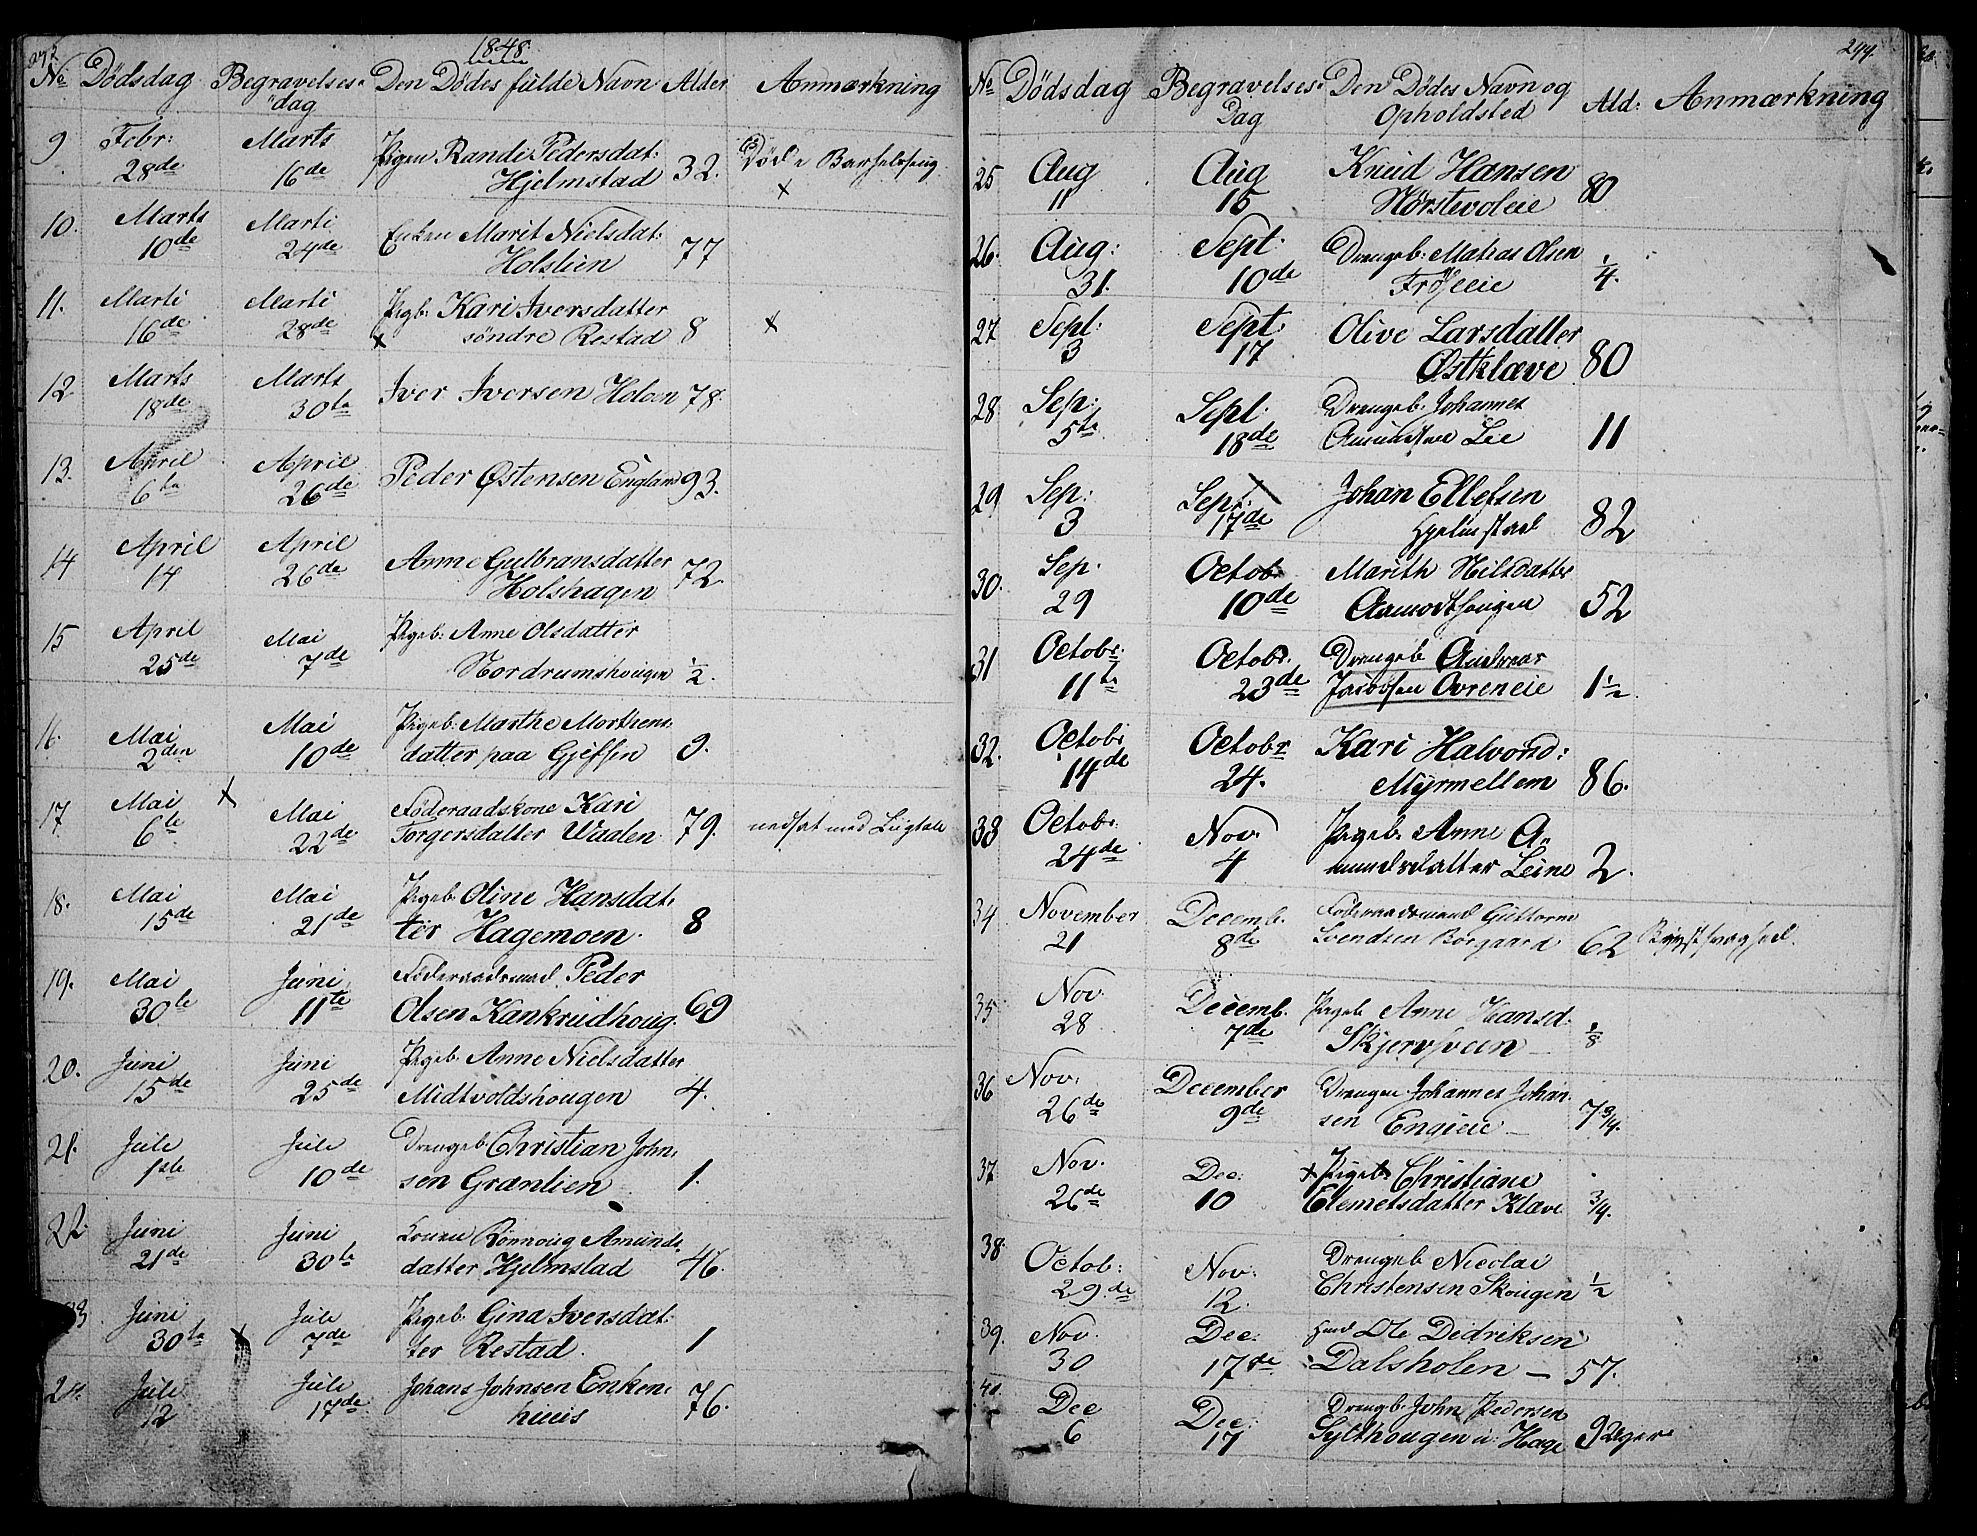 1848
No Dødsdag Begravelses- Den Dødes fulde Navn Alder Anmærkning
dag
9 Febr: Marts Pigen Randi Pedersdat: 32. Død i Barselseng
28de 16de Hjelmstad ×
10. Marts Marti Enken Marit Nielsdat: 77
10de 24de Holstien
11. Marti Marti Pigb: Kari Iversdatter ×
16de 28de × søndre Restad 8
12 Marts Marts Iver Iversen Holoen 78.
18de 30te
13. April April Peder Østensen Engla 93.
6te 26de
14 April April Anne Gulbransdatter 72
14 26de Holshagen
15 April Mai Pigeb: Anne Olsdatter
25de 7de Nordrumshougen ½.
16. Mai Mai Pigeb: Marthe Morthens-
2den 10de datter paa 9.
17 Mai × Mai Føderaadskone Kari
6te 22de Torgersdatter Waalen 79. nedsat med Liigtale
18. Mai Mai Pigeb: Oline Hansdat-
15de 21de ter Hagemoen. 8
19. Mai Juni Føderaadsmand Peder
30te 11te Olsen Kankrudhoug. 69
20. Juni Juni Pigeb: Anne Nielsdatter
15de 25de Midtvoldshougen 4.
21. Juli Juli Drengeb: Christian John-
1ste 10de sen Grænlien 1.
22 Juni Juni Konen Rønnoug Amunds-
21de 30te datter Hjelmstad 46.
23 Juni Juli Pigeb: Gina Iversdat:
30te × 7de ter Restad. 1
24. Juli Juli Johans Johnsen Enken-
12 17de huus 76.
244.
No Dødsdag Begravelses- Den Dødes Navn og Ald: Anmærkning
Dag Opholdsted
25 Aug Aug Knud Hansen 80
11 15 Hørstevoleie
26. Aug: Sept. Drengeb: Matias Olsen ¼.
31. 10de Frøseie
27 Sept: Sept: Olive Larsdatter
3 17 Østklæve 80
28 Sep: Sept. Drengeb: Johannes
5te 18de Lie 11
29 Sep: Sept. Johan Ellefsen
3 17de Hjelmstad 82
30. Sep. Octobr Marith Nilsdatter
29 10de Aamodthougen 52
31 Octobr: Octobr. Drengeb Andreas
11te 23de Jacobsen Ovreneie 1½
32. Octobr Octobr Kari Halvorsd:
14de 24. Myrmellem 86.
33 Octobr: Nov. Pigeb: Anne A-
24de 4 mundsdatter Leine 2.
34 November Decemb. Føderaadsmand Guttorm
21 8de Svendsen Borgaard 62 Brystsvaghed.
35 Nov. Decemb. Pigeb Anne Hansd:
28 7de Skjervsveen — ⅛
36 Nov: December Drengen Johannes Johan-
26de 9de sen Engieie — 7¾.
37 Nov. Dec: × Pigeb Christiane
26de 10 Clemetsdatter Klæve ¾.
38. Octob: Nov. Drengeb Nicolai
29de 12. Christensen Skougen ½
39. Nov. Dec: Ole Didriksen
30 17de Dalsholen — 57.
40. Dec Dec: Drengb: John Pedersen
6 17 Gylthougen u: Hage 9 Uger